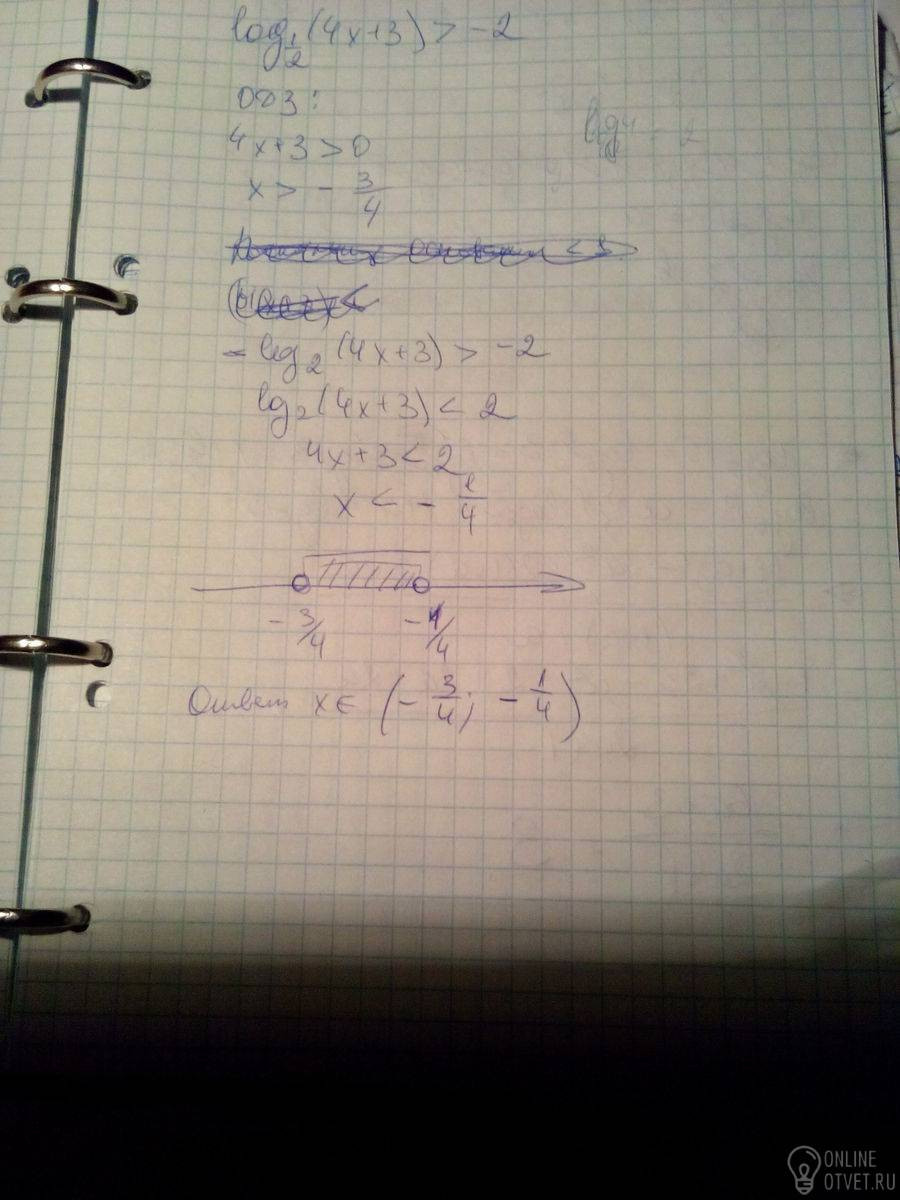 log 1/2 (4x+3) > -2
ОДЗ:
4x+3>0
x > - 3/4
- log2 (4x+3) > -2
log2 (4x+3) < 2
4x+3<2
x < - 1/4
-3/4 -1/4
Ответ x∈ (- 3/4; - 1/4)
ONLINE
OTVET.RU